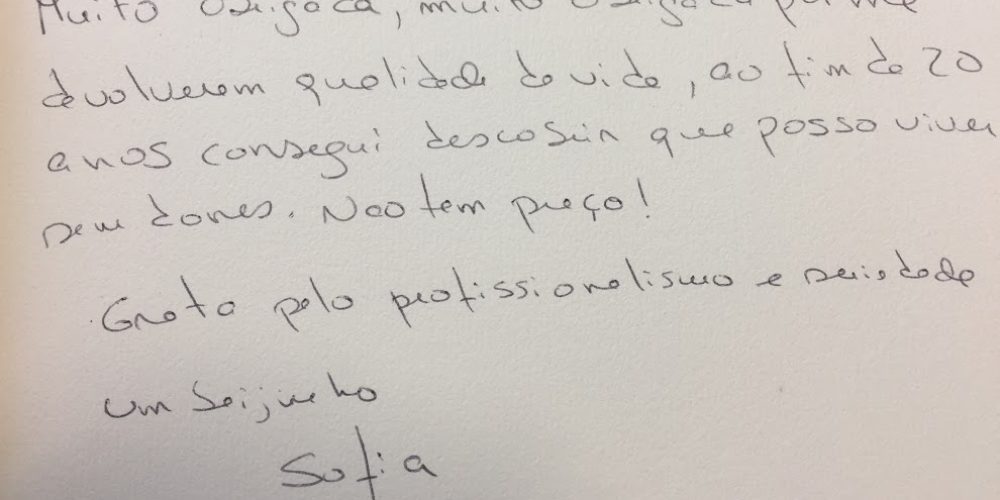 Muito obrigada, muito obrigada por me
devolverem qualidade de vida, ao fim de 20
anos consegui descobrir que posso viver
sem dores. Nao tem preço!
Grata pelo profissionalismo e seriedade
um beijinho
Sofia